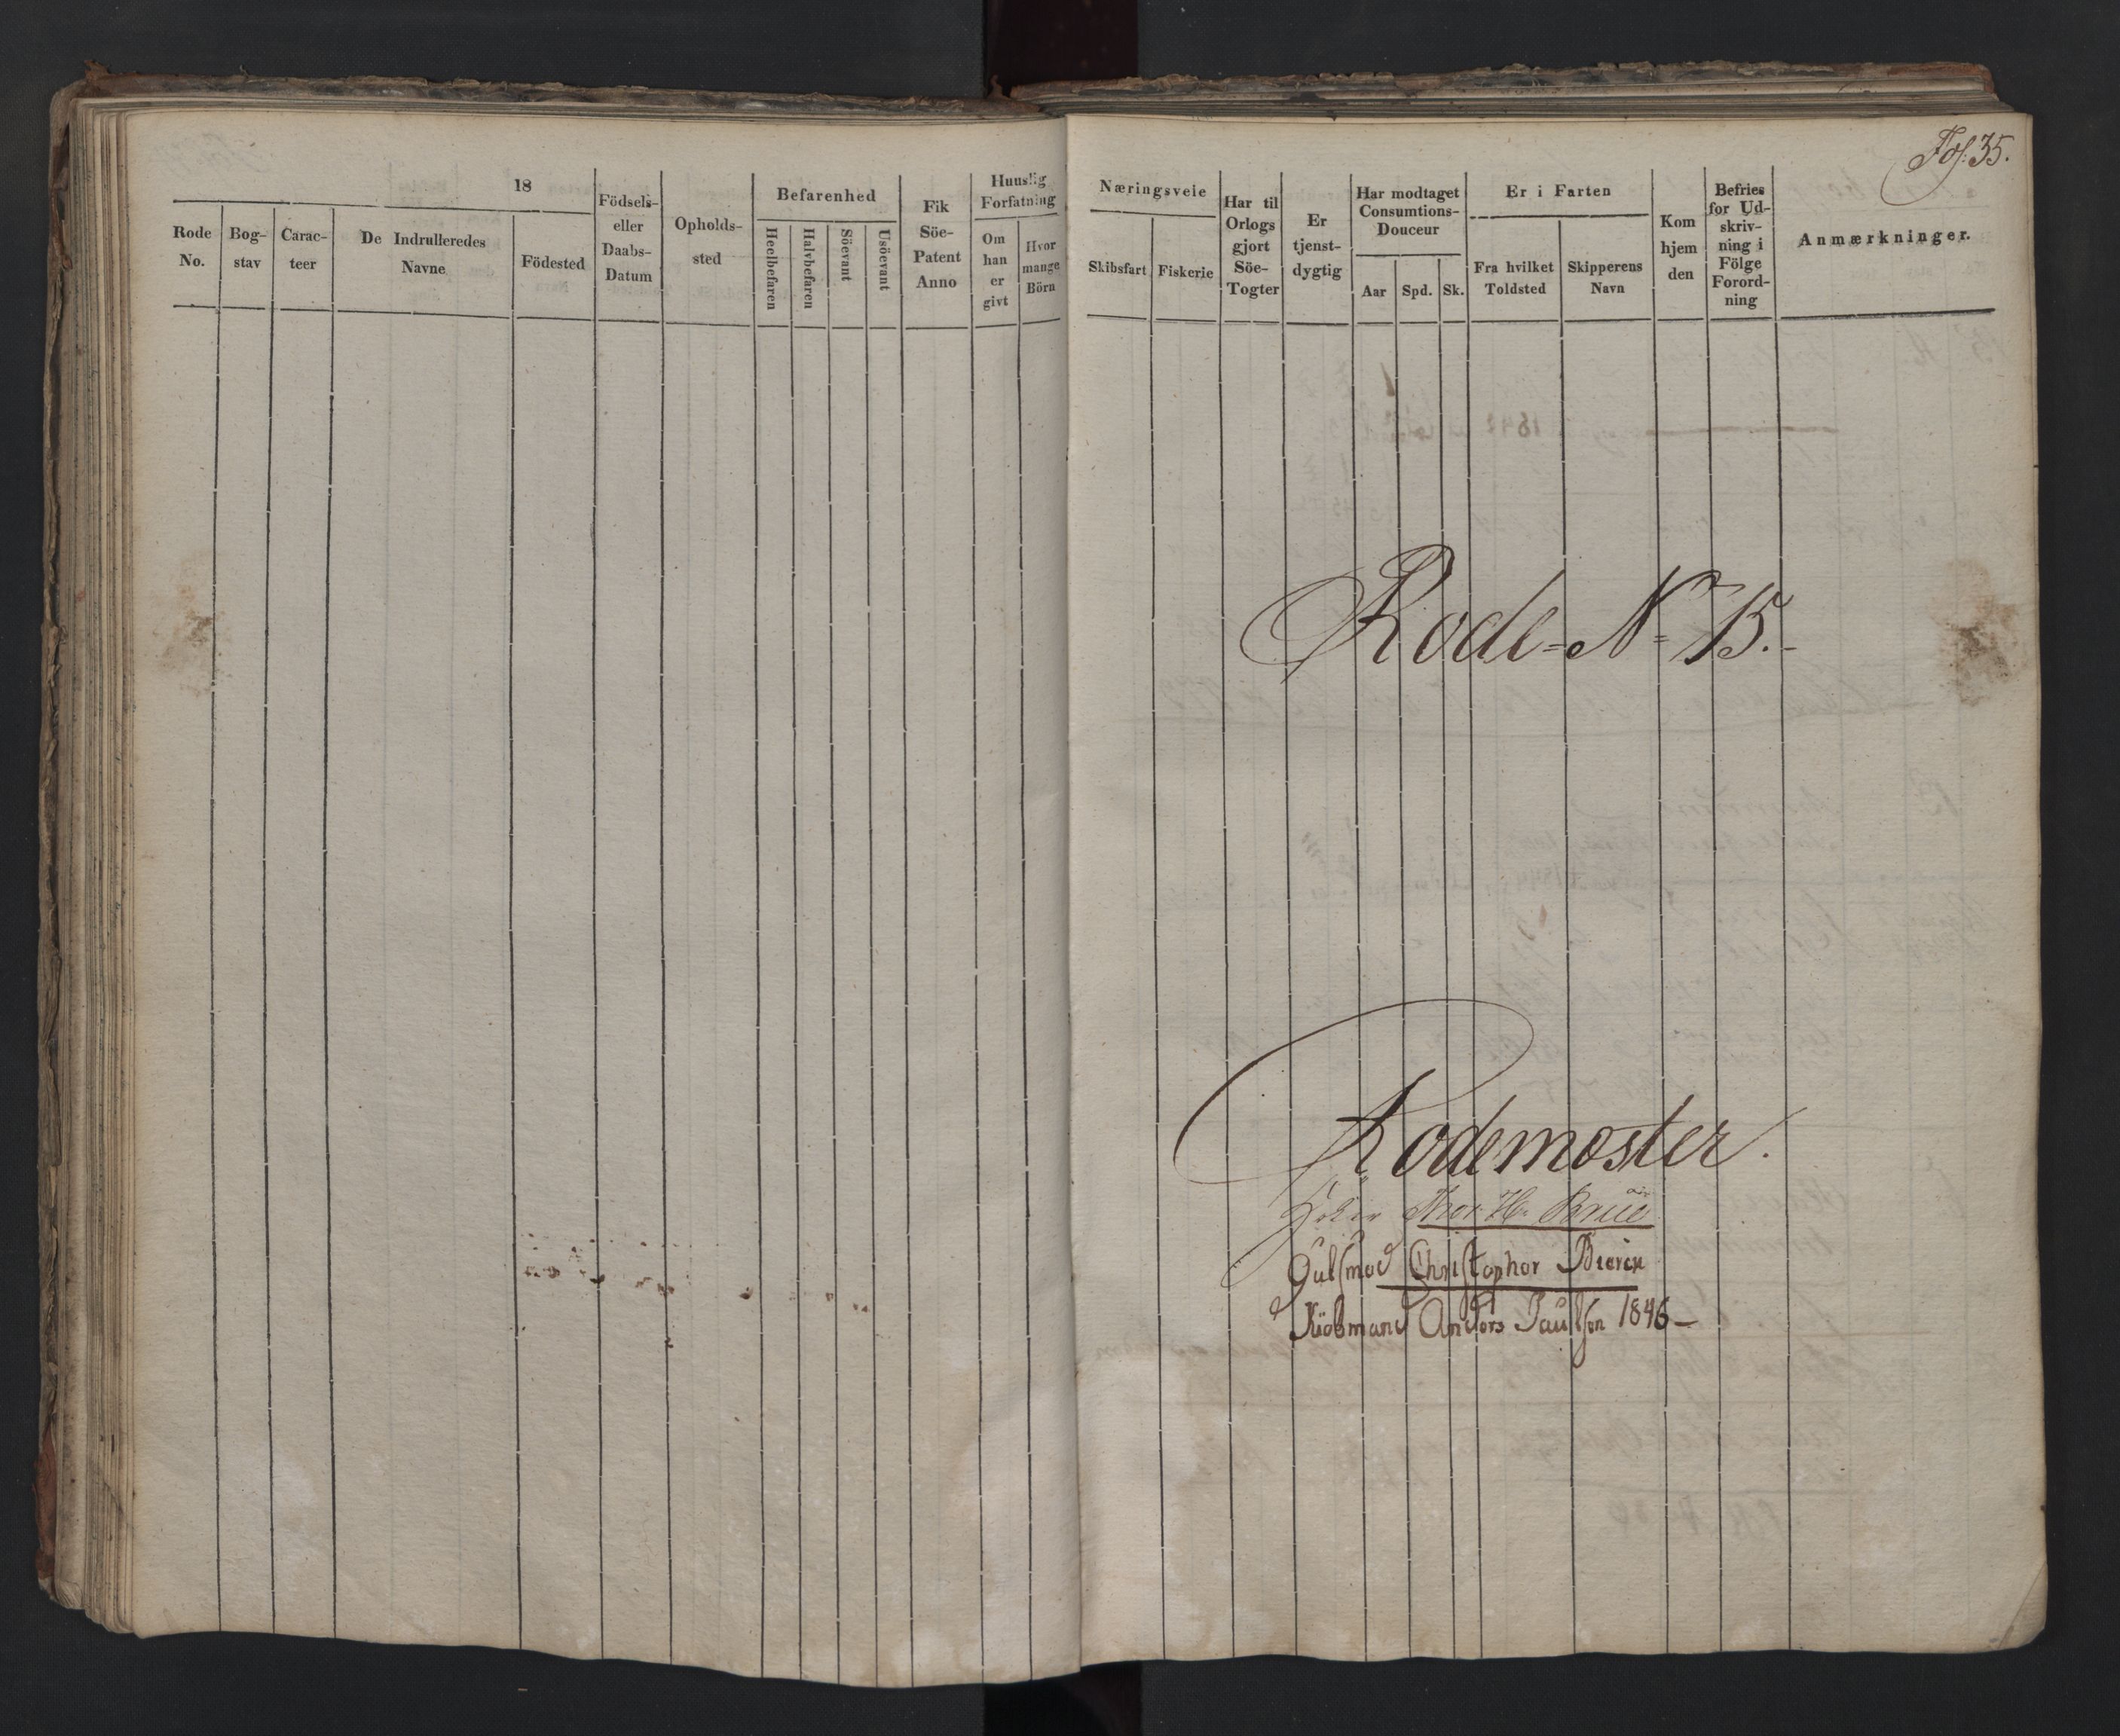 18
Rode No.
Bog-stav
Carac-teer
De Indrulleredes Navne
Födested
Födsels- eller Daabs-Datum
Opholds-sted
Befarenhed
Heelbefaren
Halvbefaren
Söevant
Usöevant
Fik Söe-Patent Anno
Huuslig Forfatning
Om han er givt
Hvor mange Börn
Fol: 35.
Næringsveie
Skibsfart
Fiskerie
Har til Orlogs gjort Söe-Togter
Er tjenst-dygtig
Har modtaget Consumtions-Douceur
Aar
Spd.
Sk.
Er i Farten
Fra hvilket Toldsted
Skipperens Navn
Kom hjem den
Befries for Ud-skriv-ning i Fölge Forord-ning
Anmærkninger.
Rode=No= 15.
Rodemester.
Brue
Gulsmed Christopher
Kiöbmand Anders Paulsen 1846